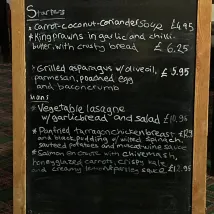 Starters
• Carrot-coconut-coriander soup £4.95
* King prawns in garlic and chilli-
butter, with crusty bread £ 6.25
* Grilled asparagus w/olive oil, £ 5.95
parmesan, poached egg
and bacon crumb
Mains
* Vegetable lasagne
w/garlic bread and salad £10.95
* Panfried tarragon chicken breast £12.9
and black pudding w/ wilted spinach,
sauteed potatoes and muscat wine sauce
* Salmon en croute with chive mash,
honey glazed carrots, crispy kale
and creamy lemon parsley sauce £12.95